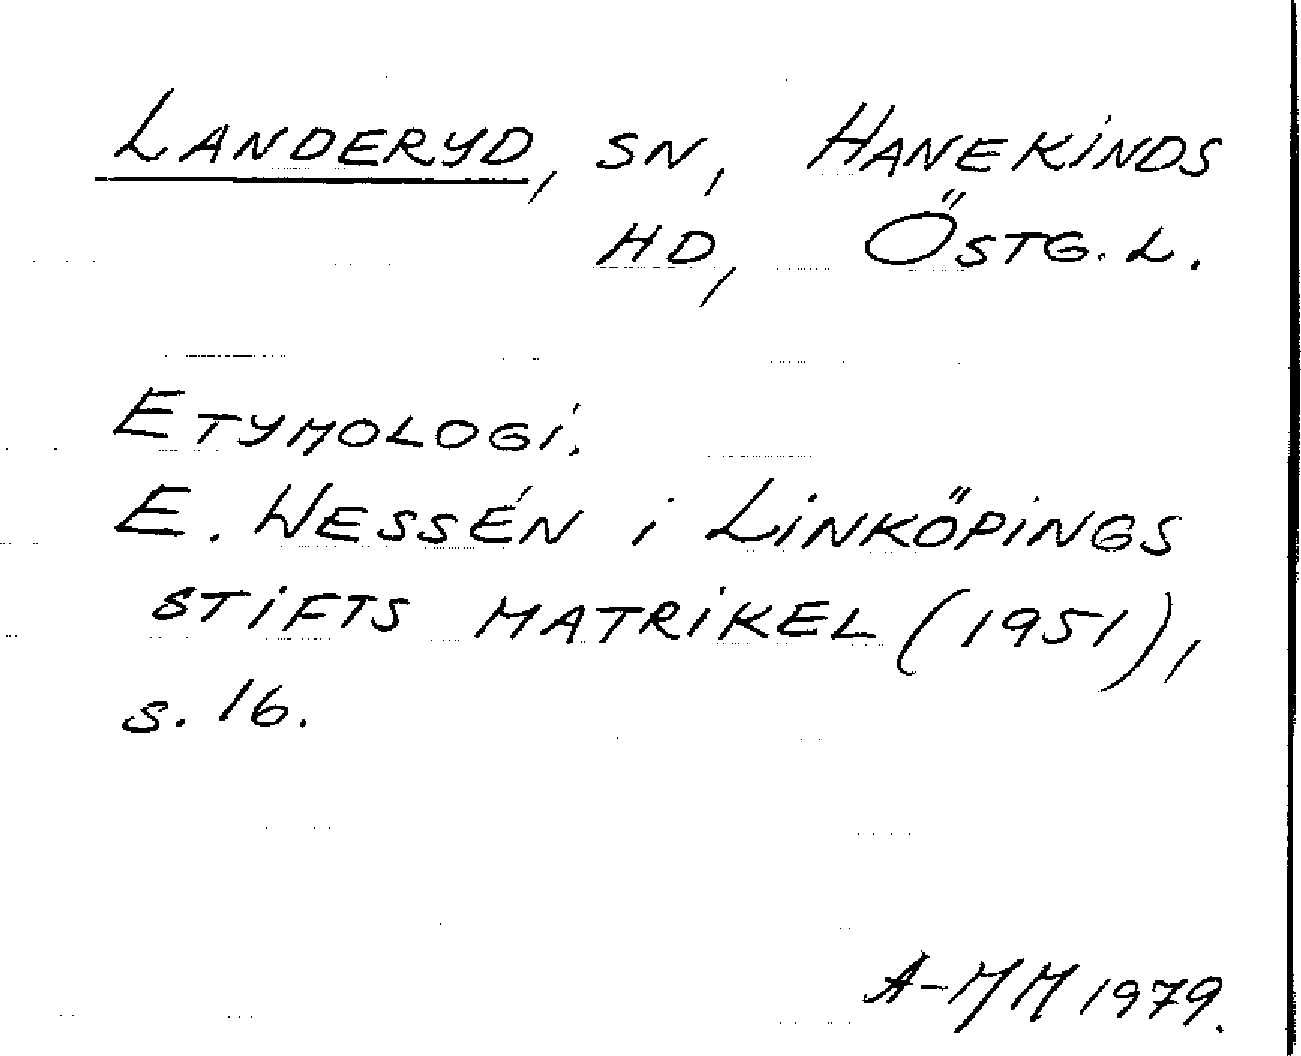 LANDERYD, SN, HANEKINDS
HD, ÖSTG. L.
ETYMOLOGI.
E. WESSÉN i LINKÖPINGS
STIFTS MATRIKEL (1951),
S. 16.
A-MM 1979.